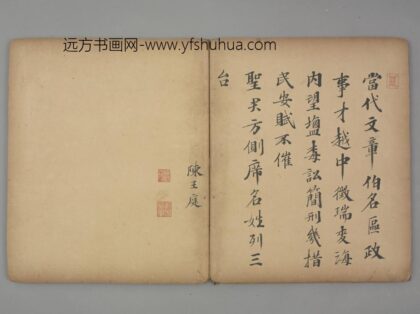 远方书画网-www.yfshuhua.com
當代文章伯名區政
事才越中徵瑞麥海
内望塩毒訟簡刑幾措
民安賦不催
聖主方側席名姓列三
台
陳王庭